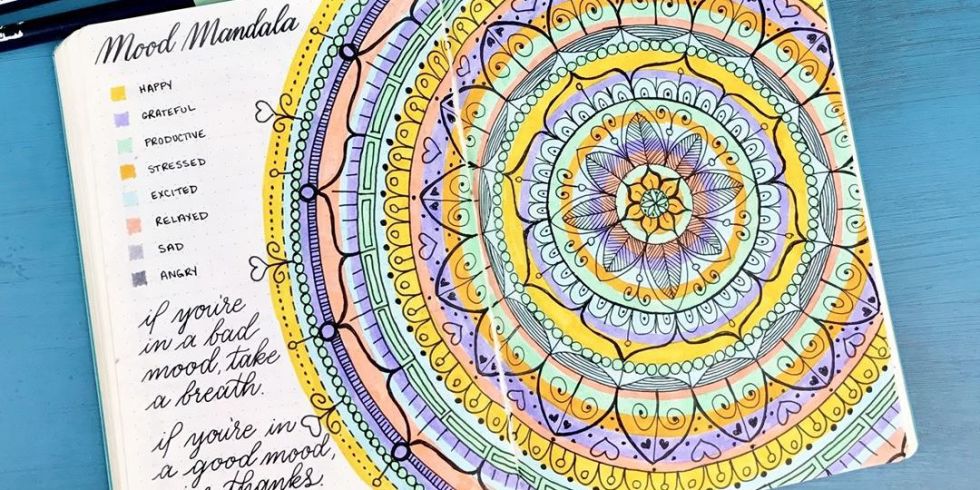 Mood Mandala
HAPPY
GRATEFUL
PRODUCTIVE
STRESSED
EXCITED
RELAXED
SAD
ANGRY
if you're
in a bad
mood, take
a breath.
if you're in
a good mood,
thanks.